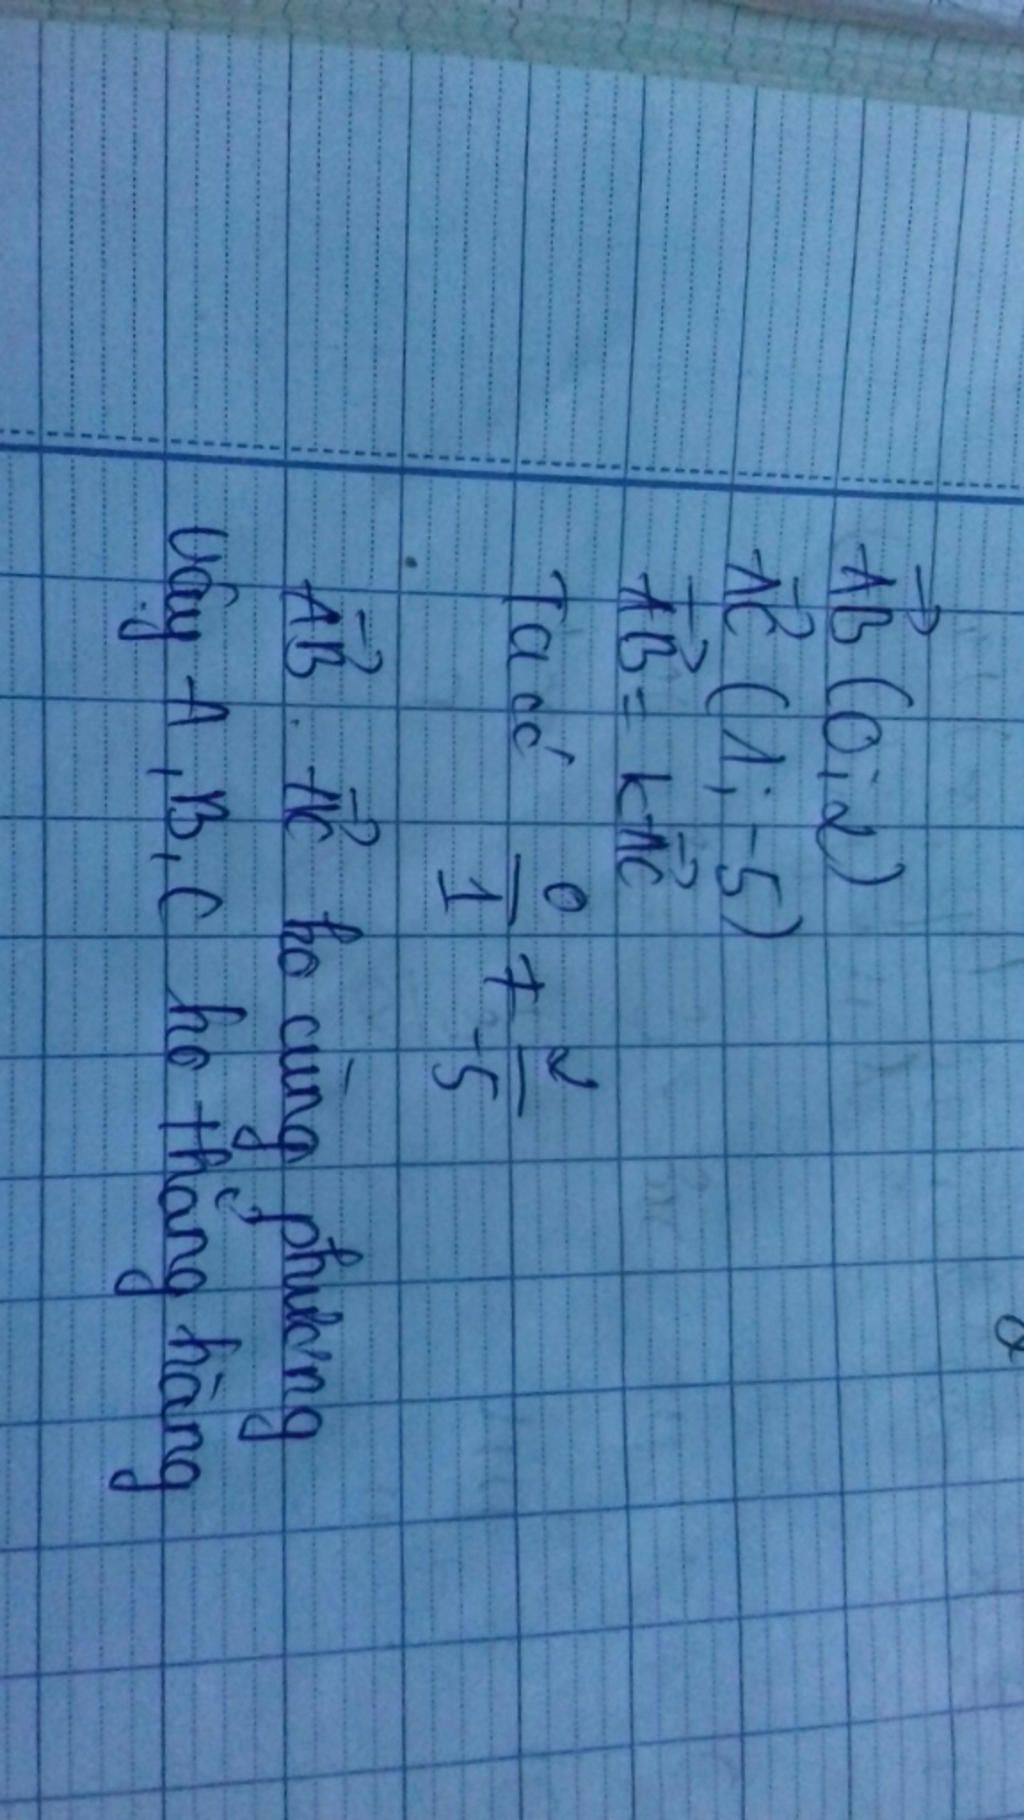 AB→ (0; 2)
AC→ (1; -5)
AB→ = kAC→
Ta có 0/1 ≠ 2/-5
AB→. AC→ ko cùng phương
Vậy A, B, C ko thẳng hàng